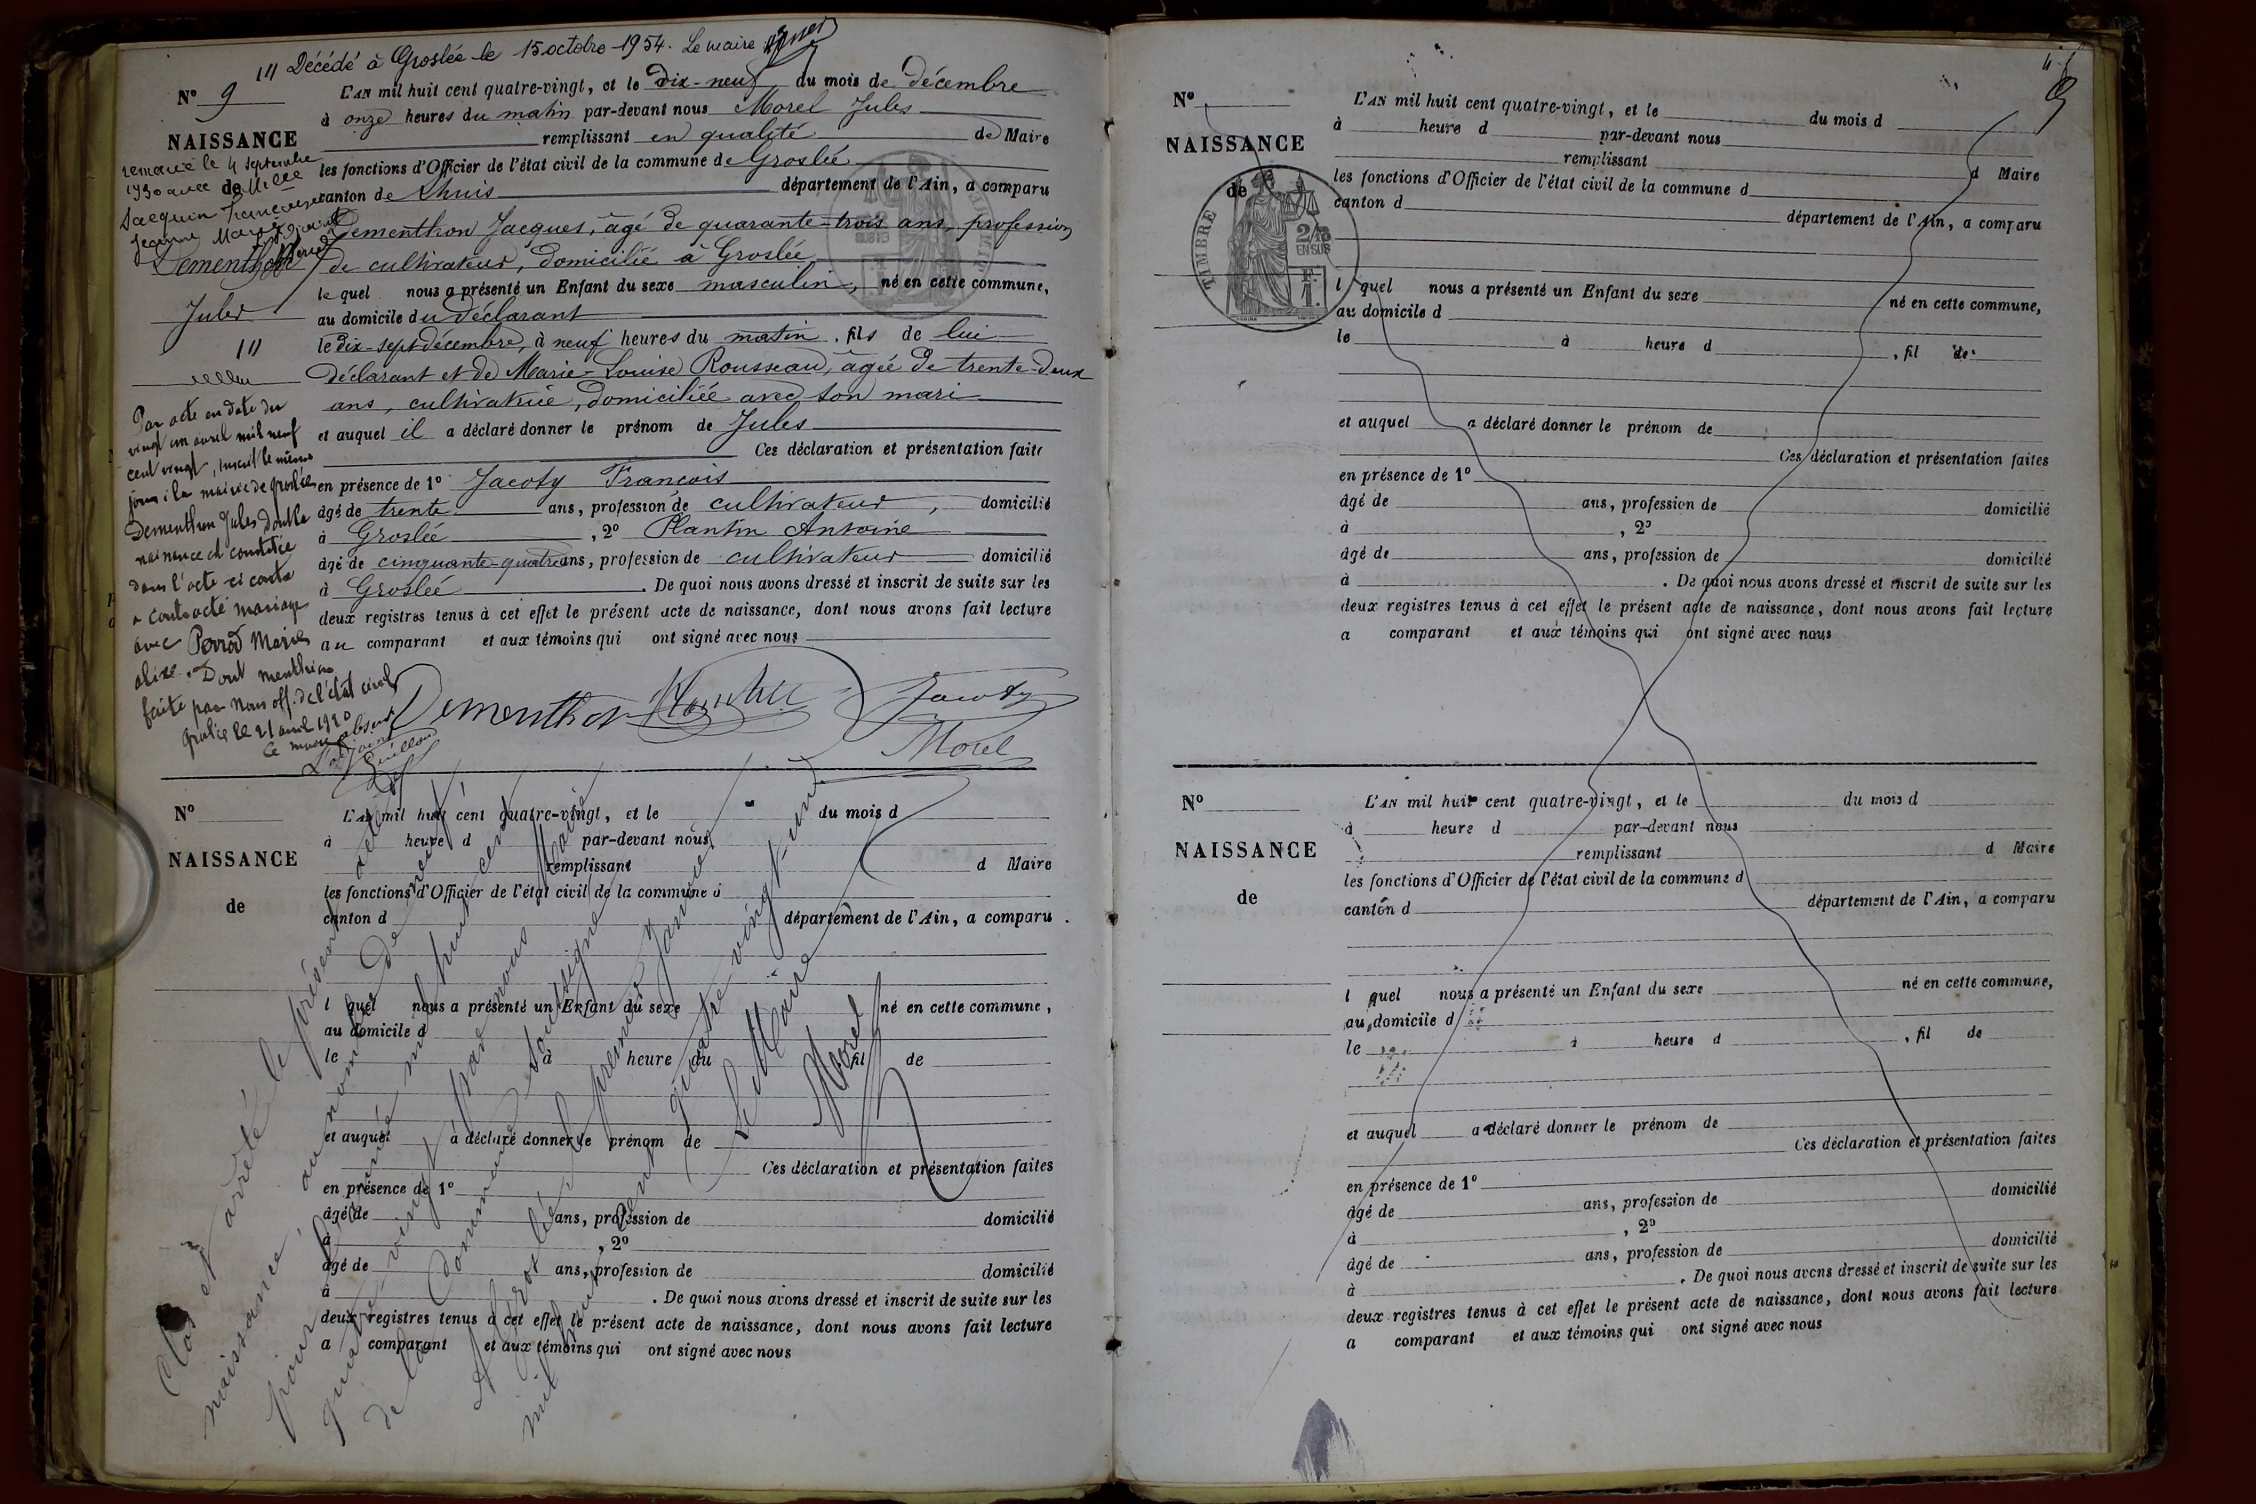 Décédé à Groslée le 15 octobre 1954. Le maire
N° 9
NAISSANCE
de
remarié le 4 septembre
1930 avec Melle
Jacquin Françoise
Jeanne Marie
Dementhon
Jules
L'AN mil huit cent quatre-vingt, et le Dix-neuf du mois de décembre
à onze heures du matin par-devant nous Morel Jules
remplissant en qualité de Maire
les fonctions d'Officier de l'état civil de la commune de Groslée
canton de Lhuis département de l'Ain, a comparu
Dementhon Jacques, âgé de quarante-trois ans, profession
de cultivateur, domicilié à Groslée
le quel nous a présenté un Enfant du sexe masculin, né en cette commune,
au domicile du déclarant
le dix-sept décembre, à neuf heures du matin, fils de lui
déclarant et de Marie-Louise Rousseau, âgée de trente-deux
ans, cultivatrice, domiciliée avec son mari
et auquel il a déclaré donner le prénom de Jules
Ces déclaration et présentation faite
en présence de 1° Jacoty François
âgé de trente ans, profession de cultivateur, domicilié
à Groslée, 2° Plantin Antoine
âgé de cinquante-quatre ans, profession de cultivateur domicilié
à Groslée. De quoi nous avons dressé et inscrit de suite sur les
deux registres tenus à cet effet le présent acte de naissance, dont nous avons fait lecture
au comparant et aux témoins qui ont signé avec nous
Par acte en date du
vingt un avril mil neuf
cent vingt, inscrit le même
jour à la mairie de Groslée
Dementhon Jules dont la
naissance est constatée
dans l'acte ci contre
a contracté mariage
avec Perrod Marie
alix. Dont mention
faite par nous off. de l'état civil
Groslée le 21 avril 1920
Le maire absent
L'adjoint
Guillon
Dementhon Jacoty
Morel
N°
NAISSANCE
de
L'AN mil huit cent quatre-vingt, et le du mois d
à heure d par-devant nous
remplissant d Maire
les fonctions d'Officier de l'état civil de la commune d
canton d département de l'Ain, a comparu
l quel nous a présenté un Enfant du sexe né en cette commune,
au domicile d
le à heure du fil de
et auquel a déclaré donner le prénom de
Ces déclaration et présentation faites
en présence de 1°
âgé de ans, profession de domicilié
à , 2°
âgé de ans, profession de domicilié
à . De quoi nous avons dressé et inscrit de suite sur les
deux registres tenus à cet effet le présent acte de naissance, dont nous avons fait lecture
a comparant et aux témoins qui ont signé avec nous
Clos et arrêté le présent
naissance, au nombre de neuf
pour l'année mil huit cent
quatre-vingt par nous Maire
de la commune soussigné
A Groslée le premier Janvier
mil huit cent quatre vingt-un
Le Maire
Morel
9
N°
NAISSANCE
de
TIMBRE
2/10
EN SUS
F.
1.
L'AN mil huit cent quatre-vingt, et le du mois d
à heure d par-devant nous
remplissant d Maire
les fonctions d'Officier de l'état civil de la commune d
canton d département de l'Ain, a comparu
l quel nous a présenté un Enfant du sexe né en cette commune,
au domicile d
le à heure d , fil de
et auquel a déclaré donner le prénom de
Ces déclaration et présentation faites
en présence de 1°
âgé de ans, profession de domicilié
à , 2°
âgé de ans, profession de domicilié
à . De quoi nous avons dressé et inscrit de suite sur les
deux registres tenus à cet effet le présent acte de naissance, dont nous avons fait lecture
a comparant et aux témoins qui ont signé avec nous
N°
NAISSANCE
de
L'AN mil huit cent quatre-vingt, et le du mois d
à heure d par-devant nous
remplissant d Maire
les fonctions d'Officier de l'état civil de la commune d
canton d département de l'Ain, a comparu
l quel nous a présenté un Enfant du sexe né en cette commune,
au domicile d
le à heure d , fil de
et auquel a déclaré donner le prénom de
Ces déclaration et présentation faites
en présence de 1°
âgé de ans, profession de domicilié
à , 2°
âgé de ans, profession de domicilié
à . De quoi nous avons dressé et inscrit de suite sur les
deux registres tenus à cet effet le présent acte de naissance, dont nous avons fait lecture
a comparant et aux témoins qui ont signé avec nous